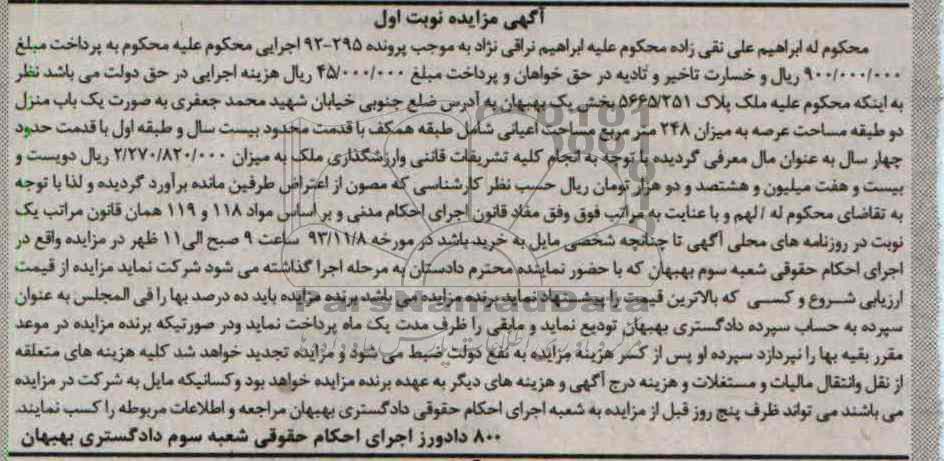 آگهی مزایده نوبت اول
محکوم له ابراهیم علی نقی زاده محکوم علیه ابراهیم نراقی نژاد به موجب پرونده ۲۹۵-۹۲ اجرایی محکوم علیه محکوم به پرداخت مبلغ
۹۰۰/۰۰۰/۰۰۰ ریال و خسارت تاخیر و تادیه در حق خواهان و پرداخت مبلغ ۴۵/۰۰۰/۰۰۰ ریال هزینه اجرایی در حق دولت می باشد نظر
به اینکه محکوم علیه ملک پلاک ۵۶۶۵/۲۵۱ بخش یک بهبهان به آدرس ضلع جنوبی خیابان شهید محمد جعفری به صورت یک باب منزل
دو طبقه مساحت عرصه به میزان ۲۴۸ متر مربع مساحت اعیانی شامل طبقه همکف با قدمت محدود بیست سال و طبقه اول با قدمت حدود
چهار سال به عنوان مال معرفی گردیده با توجه به انجام کلیه تشریفات قاننی وارزشگذاری ملک به میزان ۲/۲۷۰/۸۲۰/۰۰۰ ریال دویست و
بیست و هفت میلیون و هشتصد و دو هزار تومان ریال حسب نظر کارشناسی که مصون از اعتراض طرفین مانده برآورد گردیده و لذا با توجه
به تقاضای محکوم له / لهم و با عنایت به مراتب فوق وفق مفاد قانون اجرای احکام مدنی و بر اساس مواد ۱۱۸ و ۱۱۹ همان قانون مراتب یک
نوبت در روزنامه های محلی آگهی تا چنانچه شخصی مایل به خرید باشد در مورخه ۹۳/۱۱/۸ ساعت ۹ صبح الی۱۱ ظهر در مزایده واقع در
اجرای احکام حقوقی شعبه سوم بهبهان که با حضور نماینده محترم دادستان به مرحله اجرا گذاشته می شود شرکت نماید مزایده از قیمت
ارزیابی شروع و کسی که بالاترین قیمت را پیشنهاد نماید برنده مزایده می باشد برنده مزایده باید ده درصد بها را فی المجلس به عنوان
سپرده به حساب سپرده دادگستری بهبهان تودیع نماید و مابقی را ظرف مدت یک ماه پرداخت نماید ودر صورتیکه برنده مزایده در موعد
مقرر بقیه بها را نپردازد سپرده او پس از کسر هزینه مزایده به نفع دولت ضبط می شود و مزایده تجدید خواهد شد کلیه هزینه های متعلقه
از نقل وانتقال مالیات و مستغلات و هزینه درج آگهی و هزینه های دیگر به عهده برنده مزایده خواهد بود وکسانیکه مایل به شرکت در مزایده
می باشند می تواند ظرف پنج روز قبل از مزایده به شعبه اجرای احکام حقوقی دادگستری بهبهان مراجعه و اطلاعات مربوطه را کسب نمایند.
۸۰۰ دادورز اجرای احکام حقوقی شعبه سوم دادگستری بهبهان
ParsNamadData